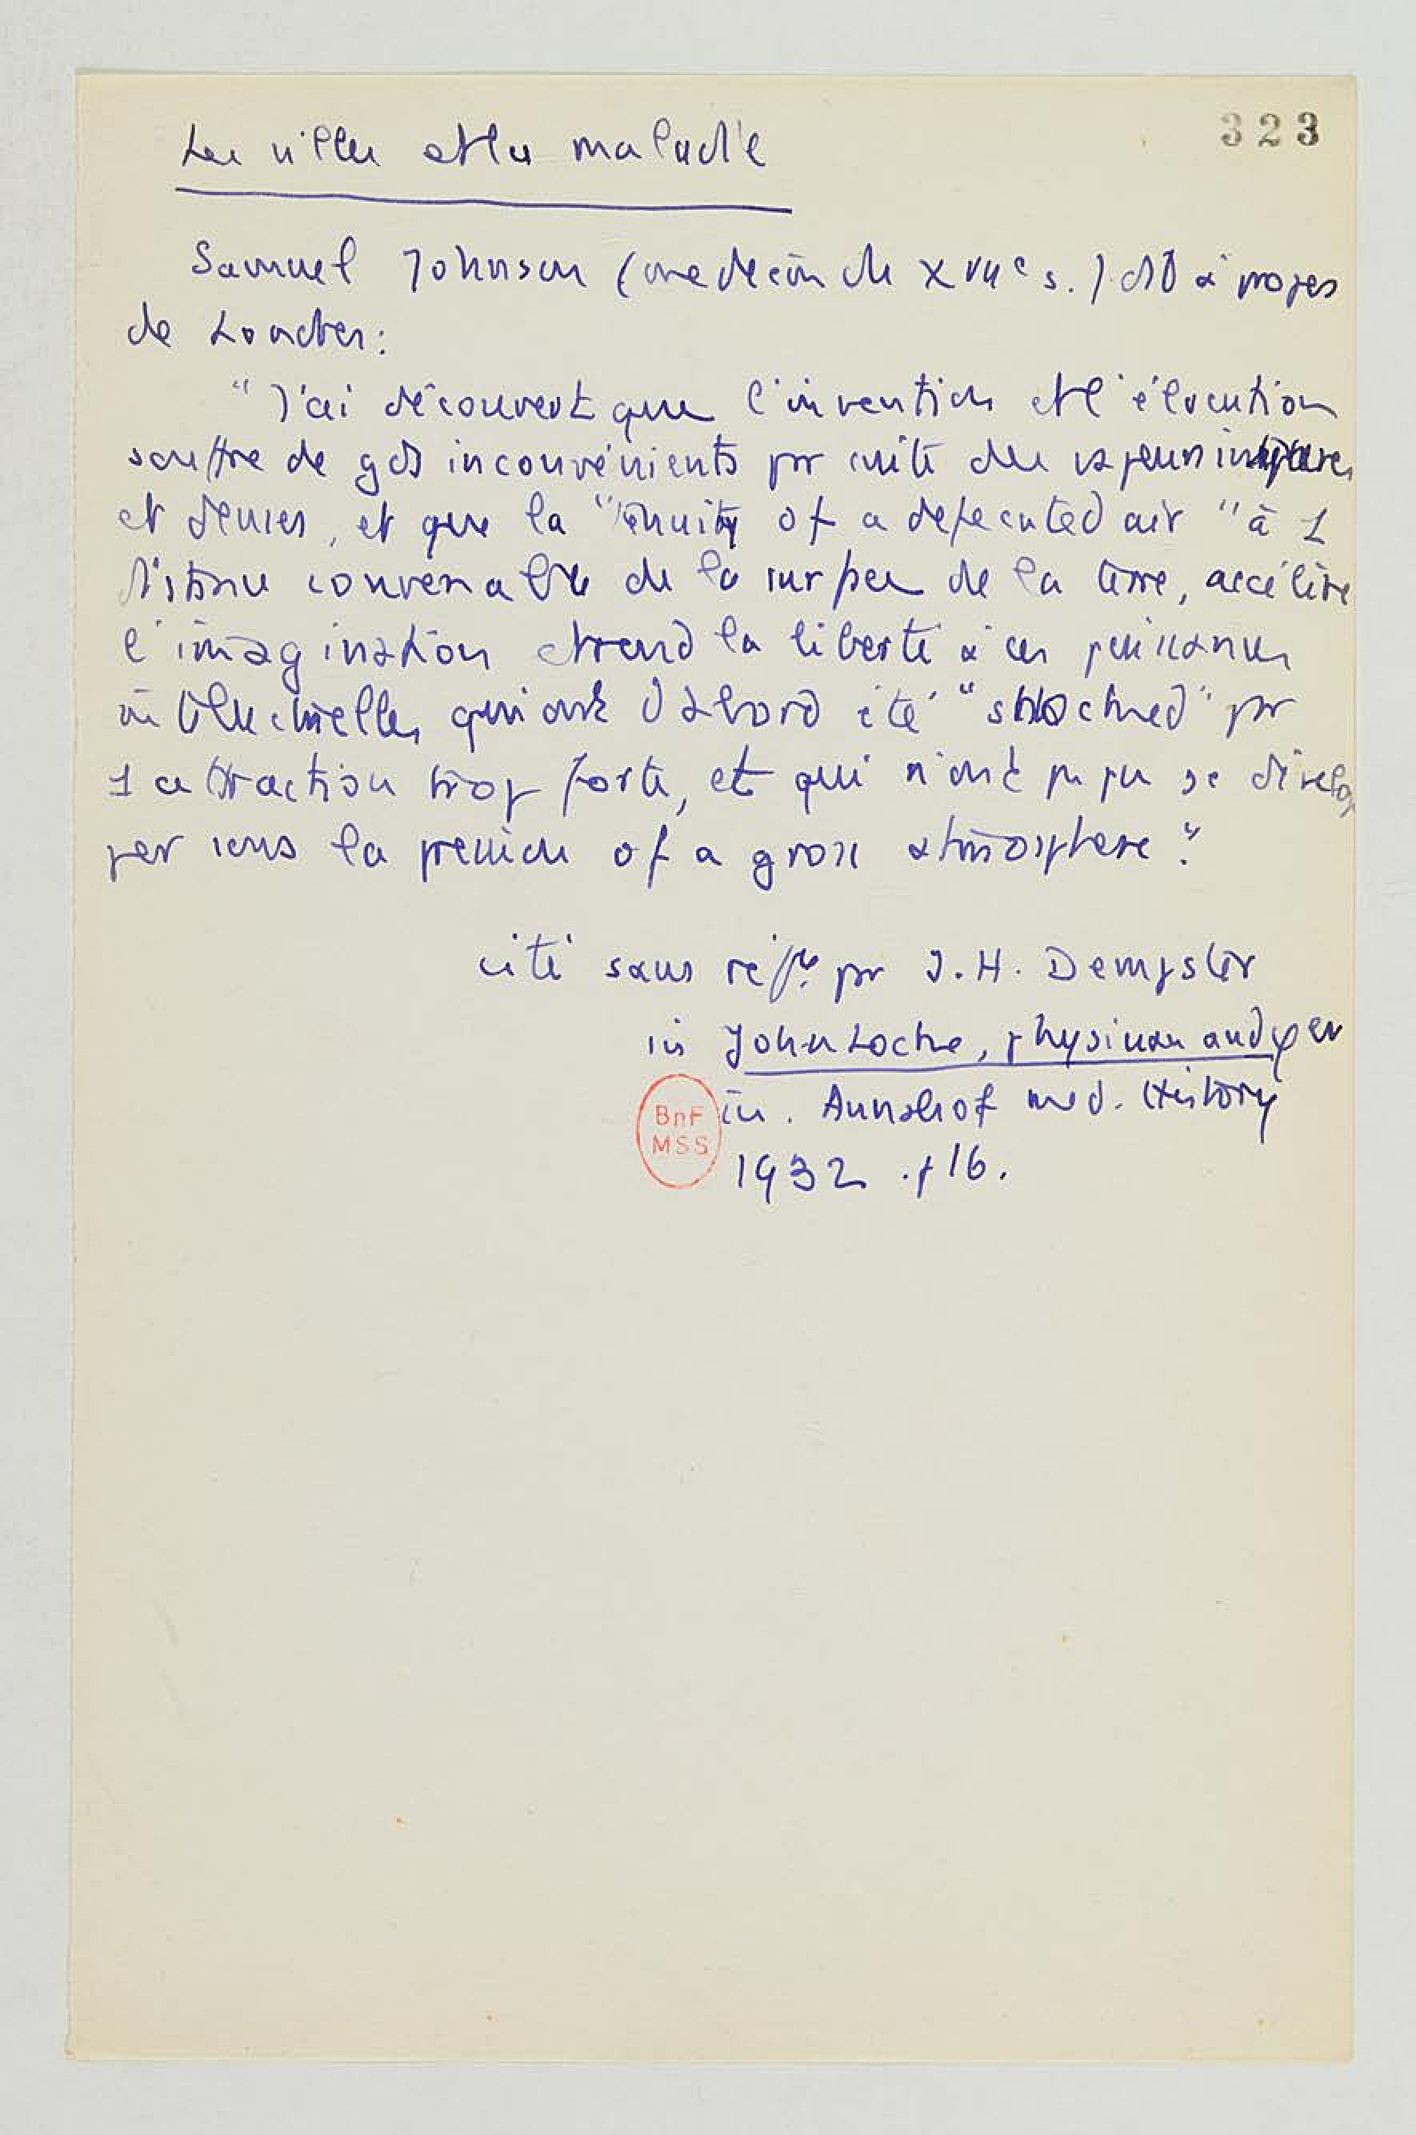 323
Les villes et la maladie
Samuel Johnson (médecin du XVIIe s.) dit à propos
de Londres :
"J'ai découvert que l'invention et l'élocution
souffre de gds inconvénients pr suite des vapeurs impures
et denses, et que la "tenuity of a defecated air" à 1
distance convenable de la surface de la terre, accélère
l'imagination et rend la liberté à ces puissances
intellectuelles qui ont d'abord été "shackled" pr
1 attraction trop forte, et qui n'ont pu se dévelop
per sous la pression of a gross atmosphere."
cité sans réfce pr J. H. Dempster
in John Locke, physician and φer
in. Annals of med. History
1932 . p 16.
BnF
MSS